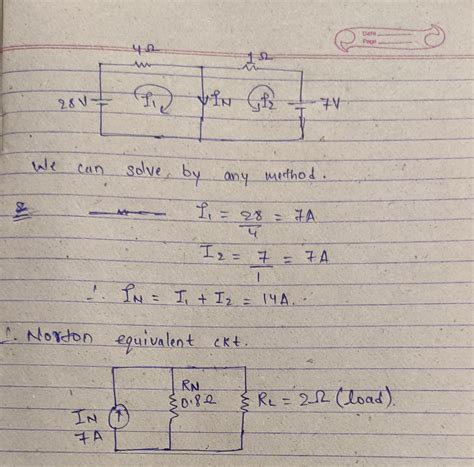 Date
Page
4Ω
1Ω
28V
I₁
I_N
I₂
7V
We can solve by any method.
I₁ = 28/4 = 7A
I2 = 7/1 = 7A
∴ I_N = I₁ + I₂ = 14A.
∴ Norton equivalent ckt.
I_N
7A
R_N
0.8Ω
R_L = 2Ω (load).